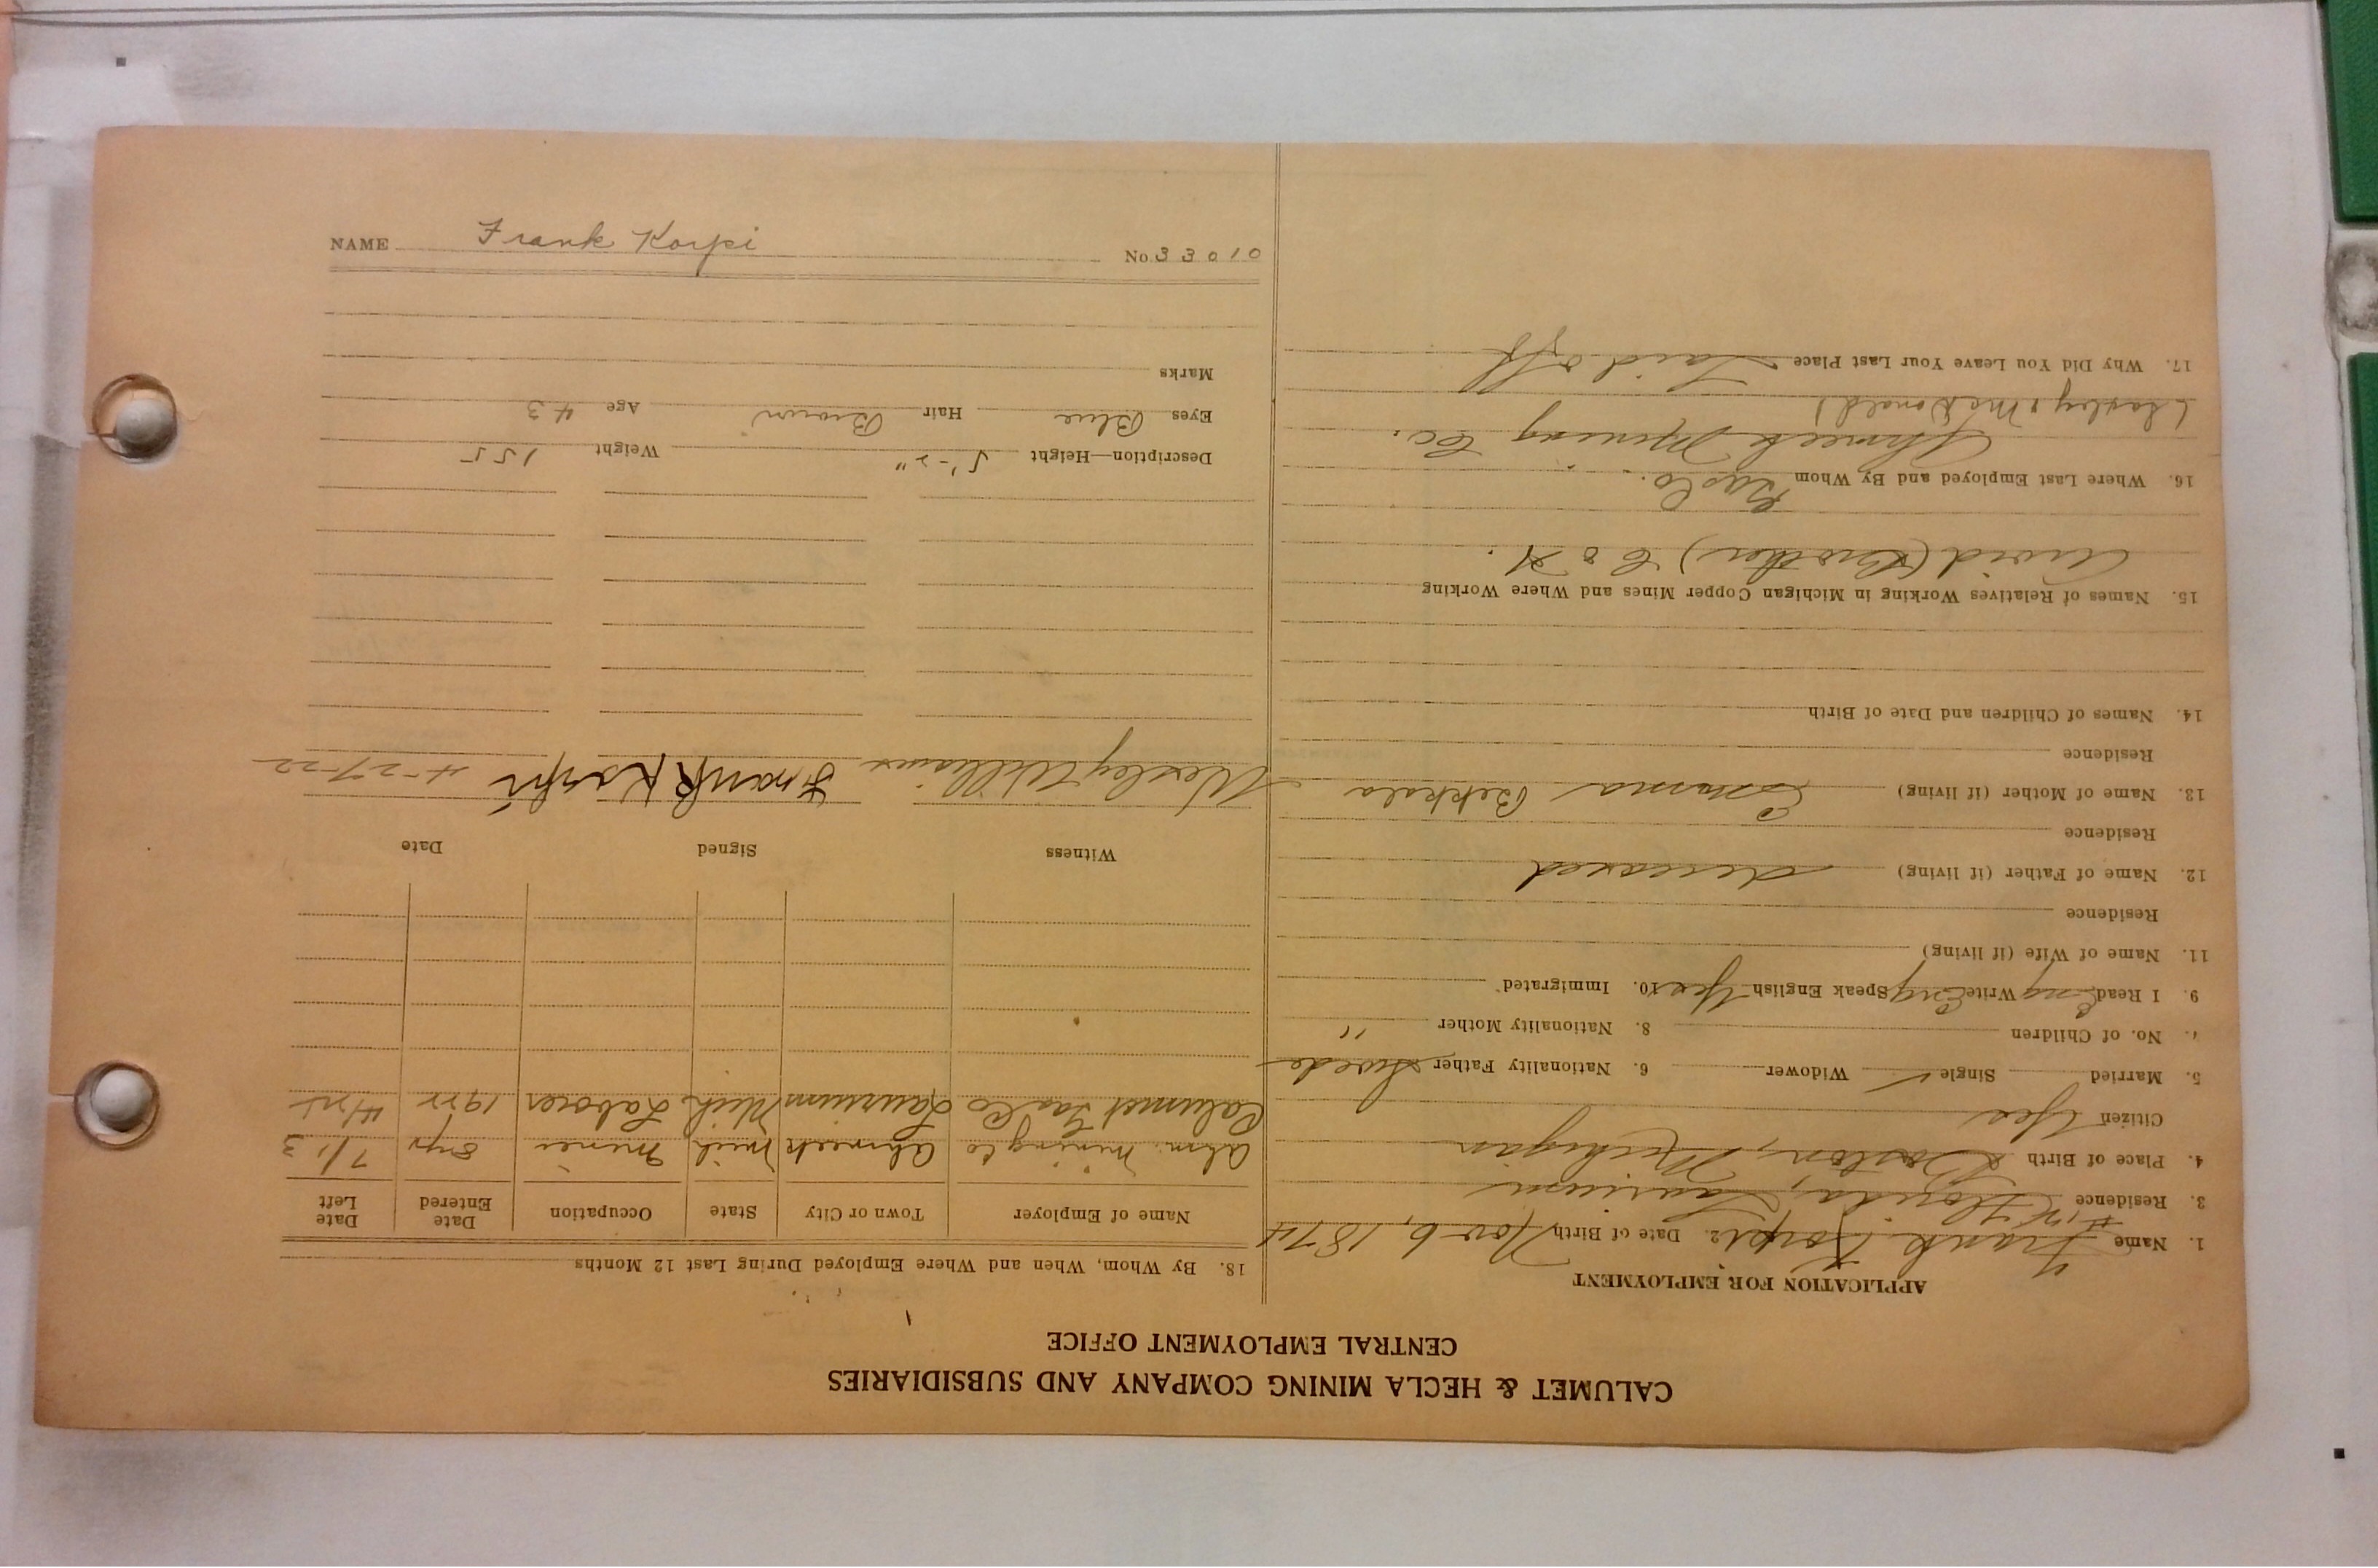 CALUMET & HECLA MINING COMPANY AND SUBSIDIARIES
CENTRAL EMPLOYMENT OFFICE
APPLICATION FOR EMPLOYMENT
1. Name Frank Korpi 2. Date of Birth Nov 6, 1874
3. Residence Florida, Laurium
4. Place of Birth Boston, Michigan
Citizen Yes
5. Married Single ✓ Widower 6. Nationality Father Swede
7. No. of Children 8. Nationality Mother "
9. I Read Eng Write Eng Speak English Yes 10. Immigrated
11. Name of Wife (if living)
Residence
12. Name of Father (if living) deceased
Residence
13. Name of Mother (if living) Emma Bekkala
Residence
14. Names of Children and Date of Birth
15. Names of Relatives Working in Michigan Copper Mines and Where Working
Arvid (Brother) C & H.
16. Where Last Employed and By Whom Gas Co.
Ahmeek Mining Co.
& McDonald)
17. Why Did You Leave Your Last Place Laid off
18. By Whom, When and Where Employed During Last 12 Months
Name of Employer Town or City State Occupation Date Entered Date Left
Ahm. Mining Co Ahmeek Mich Miner 8 yr
Calumet Gas Co Laurium Mich Laborer 1922
Witness Signed Date
Wesley Williams Frank Korpi 4-27-22
Description—Height 5'-2" Weight 155
Eyes Blue Hair Brown Age 43
Marks
NAME Frank Korpi No. 33010